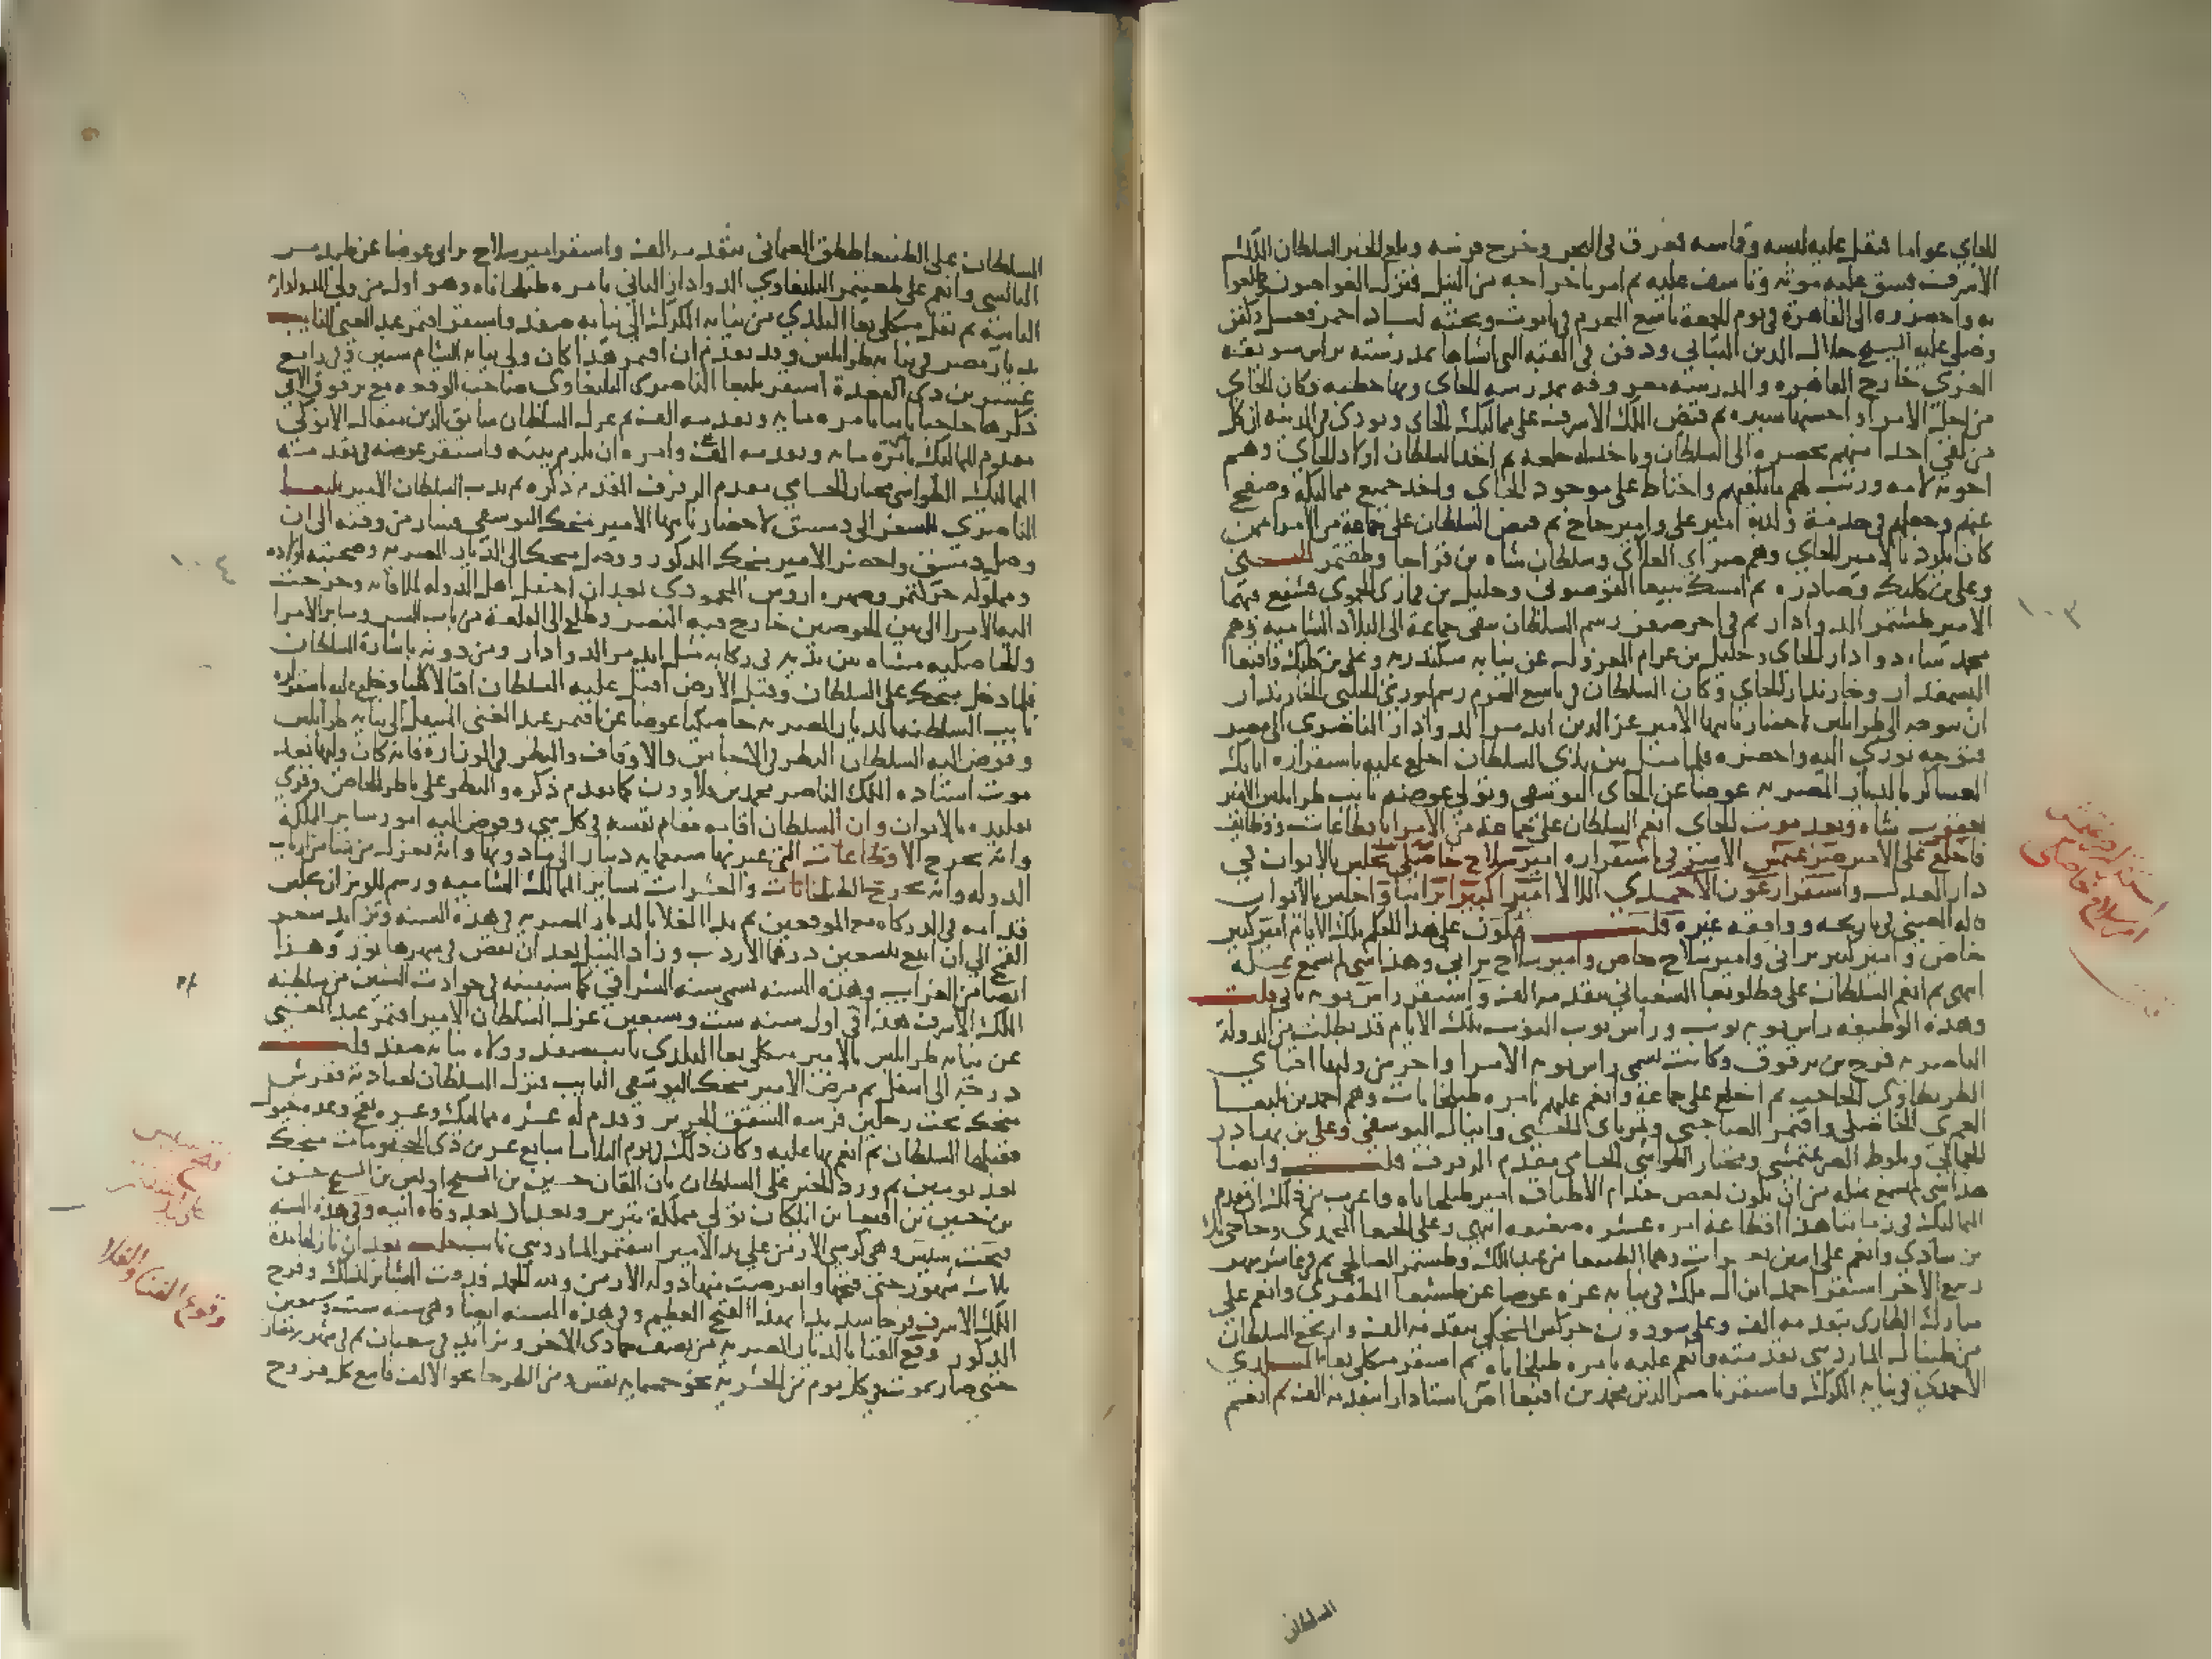 الجاي عواما فثقل عليه لبسه وقماشه فغرق في البحر وخرج فرسه وبلغ الخبر السلطان الملك
الاشرف فشق عليه موته وتاسف عليه ثم امر باخراجه من النيل فنزل الغواصون وطلعوا
به واحضروه الى القاهرة في يوم الجمعة تاسع المحرم في تابوت وتحته لباد احمر فغسل وكفن
وصلى عليه الشيخ جلال الدين التباني ودفن في القبة التي انشاها بمدرسته براس سويقة
العزي خارج القاهره والمدرسة معروفه بمدرسة الجاي وبها خطبه وكان الجاي
من اجل الامرا واحسنها سيره ثم قبض الملك الاشرف على مماليك الجاي ونودي في المدينه ان كل
من لقي احدا منهم يحضره الى السلطان وياخذ له خلعه ثم اخذ السلطان اولاد الجاي وهم
اخوته لامه ورتب لهم ما يكفيهم واحتاط على موجود الجاي واخذ جميع مماليكه وصفح
عنهم وجعلهم في خدمة ولديه امير علي وامير حاج ثم قبض السلطان على جماعة من الامرا ممن
كان يلوذ بالامير الجاي وهم صراي العلائي وسلطان شاه بن قراجا وطقتمر الحسني
وعلي بن كلبك وصادره ثم امسك بيبغا القوصوني وخليل بن قماري الحموي فشفع فيهما
الامير طشتمر الدوادار ثم في اخر صفر رسم السلطان بنفي جماعة الى البلاد الشاميه وهم
محمد شاه دوادار الجاي وخليل بن عرام المعزول عن نيابه سكندريه وعلي بن كلبك واقبغا
البشمقدار وخازندار الجاي وكان السلطان في تاسع المحرم رسم لبوري الحلبي الخازندار
ان يتوجه الى طرابلس لاحضار نايبها الامير عز الدين ايدمر الدوادار الناصري الى مصر
فتوجه بوري اليه واحضره فلما مثل بين يدي السلطان اخلع عليه باستقراره اتابك
العساكر بالديار المصريه عوضا عن الجاي اليوسفي وتولى عوضه نايب طرابلس الامير
يعقوب شاه وبعد موت الجاي انعم السلطان على جماعة من الامرا باقطاعات ووظايف
فاخلع على الامير صرغتمش الاشرفي باستقراره امير سلاح خاصكي يجلس بالايوان في
دار العدل واستقر ارغون الاحمدي اللالا امير كبير برانيا واجلس بالايوان
قاله العيني في تاريخه ووافقه غيره قلت فيكون على هذا الحكم تلك الايام امير كبير
خاص وامير كبير براني وامير سلاح خاص وامير سلاح براني وهذا شي لم يسمع بمثله
انتهى ثم انعم السلطان على قطلوبغا الشعباني بتقدمه الف واستقر راس نوبه ثاني قلت
وهذه الوظيفه راس نوبه ثوب وراس نوب النوب تلك الايام قد بطلت من الدولة
الناصريه فرج بن برقوق وكانت تسمى راس نوبه الامرا واخر من وليها اقباي
الطرنطاوي الحاجب ثم اخلع على جماعة وانعم عليهم بامره طبلخانات وهم احمد بن يلبغا
العمري الخاصكي واقتمر الصاحبي وتمرباي الحسني واينال اليوسفي وعلي بن بهادر
الجمالي وبلوط الصرغتمشي ومختار الطواشي الحسامي مقدم الرفرف قلت وايضا
هذا شي لم يسمع بمثله من ان يكون بعض خدام الاطباق امير طبلخاناه واغرب من ذلك ان مقدم
المماليك في زماننا هذا اقطاعه امره عشره ضعيفه انتهى وعلى الجبغا المحمدي وحاجي بك
بن شادي وانعم على امين بعشرات وهما الطنبغا من عبد الملك وطشتمر الصالحي ثم في عاشر شهر
ربيع الاخر استقر احمد بن ال ملك في نيابه غزه عوضا عن طشبغا المظفري وانعم على
مبارك الطازي بتقدمه الف وعلى سودون جركس المنجكي بتقدمه الف وارتجع السلطان
من طينال المارديني تقدمته وانعم عليه بامره طبلخاناه ثم استقر منكلي بغا البلدي
الاحمدي في نيابه الكرك واستقر ناصر الدين محمد بن اقبغا اص استادارا بتقدمه الف ثم انعم
السلطان
استقرار صرغتمش
امير سلاح خاصكي
١٠٣
السلطان على الطنبغا ططق العثماني بتقدمه الف واستقر امير سلاح براني عوضا عن طيدمر
البالسي وانعم على طغيتمر اليلبغاوي الدوادار الثاني بامره طبلخاناه وهو اول من ولي الدوادارية
الثانيه ثم نقل منكلي بغا البلدي من نيابه الكرك الى نيابه صفد واستقر اقتمر عبد الغني النايب
بديار مصر في نيابه طرابلس وقد تقدم ان اقتمر هذا كان ولي نيابه الشام سنين ثم في رابع
عشرين ذي القعدة استقر يلبغا الناصري اليلبغاوي صاحب الوقعه مع برقوق الاتي
ذكرها حاجبا ثانيا بامره مايه وتقدمه الف ثم عزل السلطان سابق الدين مثقال الانوكي
مقدم المماليك بامره مايه وتقدمه الف وامره ان يلزم بيته واستقر عوضه في تقدمة
المماليك الطواشي مختار الحسامي مقدم الرفرف المقدم ذكره ثم ندب السلطان الامير يلبغا
الناصري للسفر الى دمشق لاحضار نايبها الامير منجك اليوسفي فسار من وقته الى ان
وصل دمشق واحضر الامير منجك المذكور ووصل منجك الى الديار المصريه وصحبته اولاده
ومملوكه جركتمر وصهره اروس المحمودي بعد ان احتفل اهل الدوله لملاقاته وخرجت
اليه الامرا الى بين الحوضين خارج قبه النصر وطلع الى القلعة من باب السر وساير الامرا
والخاصكيه مشاه بين يديه في ركابه مثل ايدمر الدوادار ومن دونه باشارة السلطان
فلما دخل منجك على السلطان وقبل الارض اقبل عليه السلطان اقبالا كليا وخلع عليه باستقراره
نايب السلطنه بالديار المصريه خاصكيا عوضا عن اقتمر عبد الغني المنتقل الى نيابه طرابلس
وفوض اليه السلطان النظر في الاحباس والاوقاف والنظر في الوزاره فانه كان وليها بعد
موت استاده الملك الناصر محمد بن قلاوون كما تقدم ذكره والنظر على ناظر الخاص وقري
تقليده بالايوان وان السلطان اقامه مقام نفسه في كل شي وفوض اليه امور ساير المملكة
وانه يخرج الاقطاعات التي عبرتها سبعمايه دينار الى ما دونها وانه يعزل من شا من ارباب
الدوله وانه يخرج الطبلخانات والعشرات بساير الممالك الشاميه ورسم للوزير ان يجلس
قدامه في الدركاه مع الموقعين ثم بدا الغلا بالديار المصريه في هذه السنه وتزايد سعر
القمح الى ان ابيع بتسعين درهما الاردب وزاد النيل بعد ان نقص في شهر هاتور وهذا
ايضا من الغرايب وهذه السنه تسمى سنة الشراقي كما سنبينه في حوادث السنين من سلطنه
الملك الاشرف هذا ثم في اول سنه ست وسبعين عزل السلطان الامير اقتمر عبد الغني
عن نيابه طرابلس بالامير منكلي بغا البلدي نايب صفد وولاه نيابه صفد قلت
درجة الى اسفل ثم مرض الامير منجك اليوسفي النايب فنزل السلطان لعيادته ففرش
منجك تحت رجلين فرسه الشقق الحرير وقدم له عشره مماليك وعشره بقج وعده خيول
فقبلها السلطان ثم انعم بها عليه وكان ذلك في يوم الثلاثا سابع عشرين ذي الحجه ومات منجك
بعد يومين ثم ورد الخبر على السلطان بان القان حسين بن الشيخ اويس بن الشيخ حسن
بن حسين بن اقبغا بن ايلكان تولى مملكة تبريز وبغداد بعد وفاه ابيه وفي هذه السنه
فتحت سيس وهي كرسي الارمن على يد الامير اشقتمر المارديني نايب حلب بعد ان نازلها مدة
ثلاث شهور حتى فتحها وانقرضت منها دوله الارمن ولله الحمد فدقت البشاير لذلك وفرح
الملك الاشرف فرحا شديدا بهذا الفتح العظيم وفي هذه السنه ايضا وهي سنه ست وسبعين
المذكور وقع الفنا بالديار المصريه من نصف جمادى الاخر وتزايد في شعبان ثم في شهر رمضان
حتى صار يموت في كل يوم من الحشريه نحو خمسمايه نفس ومن الطرحا نحو الالف فابيع كل فروج
١٠٤
وقوع الفنا والغلا